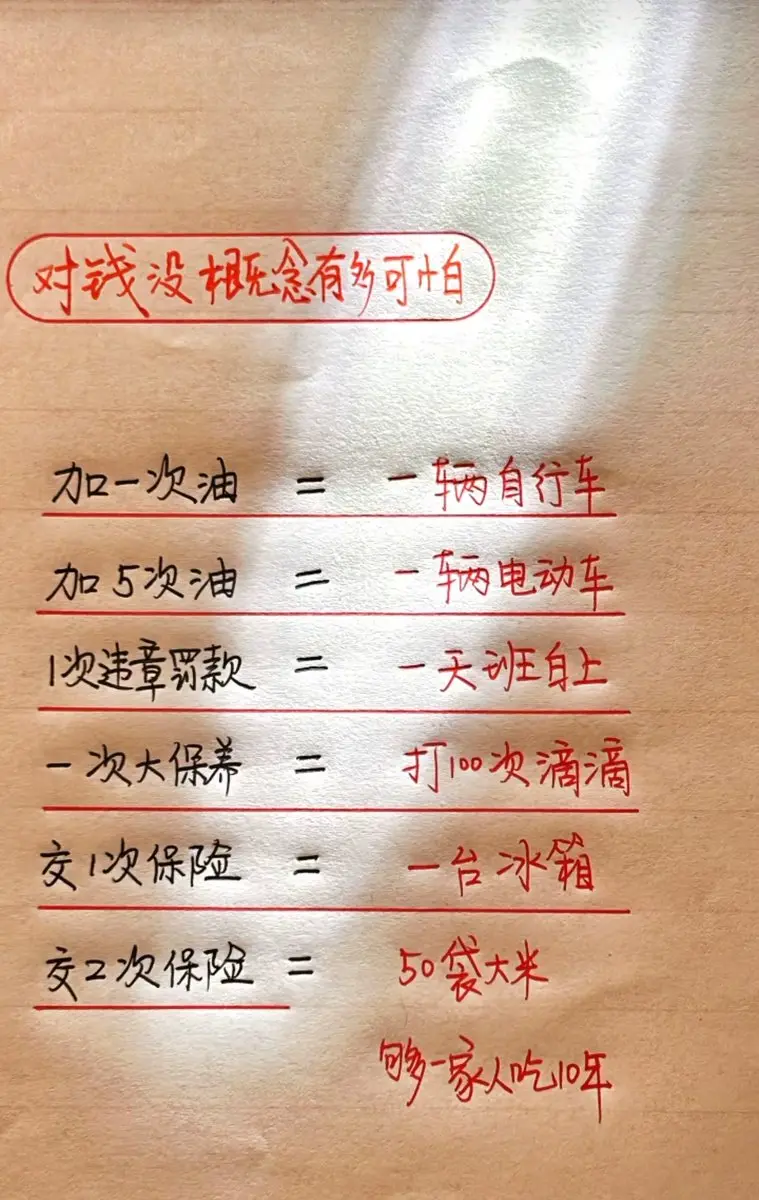 对钱没概念有多可怕
加一次油 = 一辆自行车
加5次油 = 一辆电动车
1次违章罚款 = 一天班白上
一次大保养 = 打100次滴滴
交1次保险 = 一台冰箱
交2次保险 = 50袋大米
够一家人吃10年